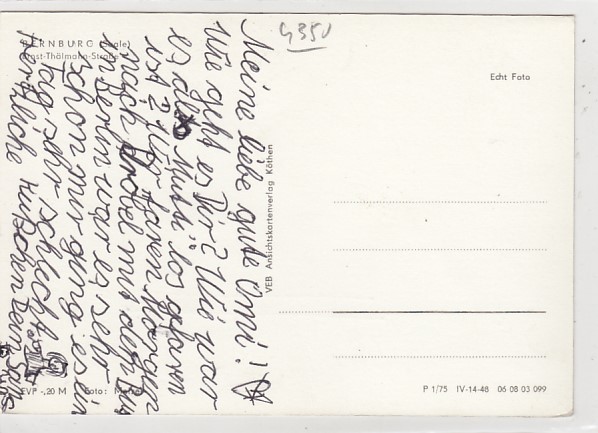 4350
BERNBURG (Saale)
Ernst-Thälmann-Straße
Echt Foto
Meine liebe gute Omi!
Wie geht es Dir? Wie war
es als Mutti los gefaren
ist 2 Uhr faren Morgen
nach mit den Bus
in Berlin war es sehr
schön mir ging es ein
Tag sehr schlecht
herzliche Küßchen Deine
VEB Ansichtskartenverlag Köthen
EVP -,20 M Foto:
P 1/75 IV-14-48 06 08 03 099